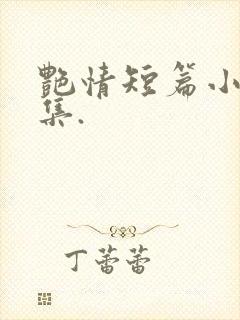 艷情短篇小
集.
丁蕾蕾